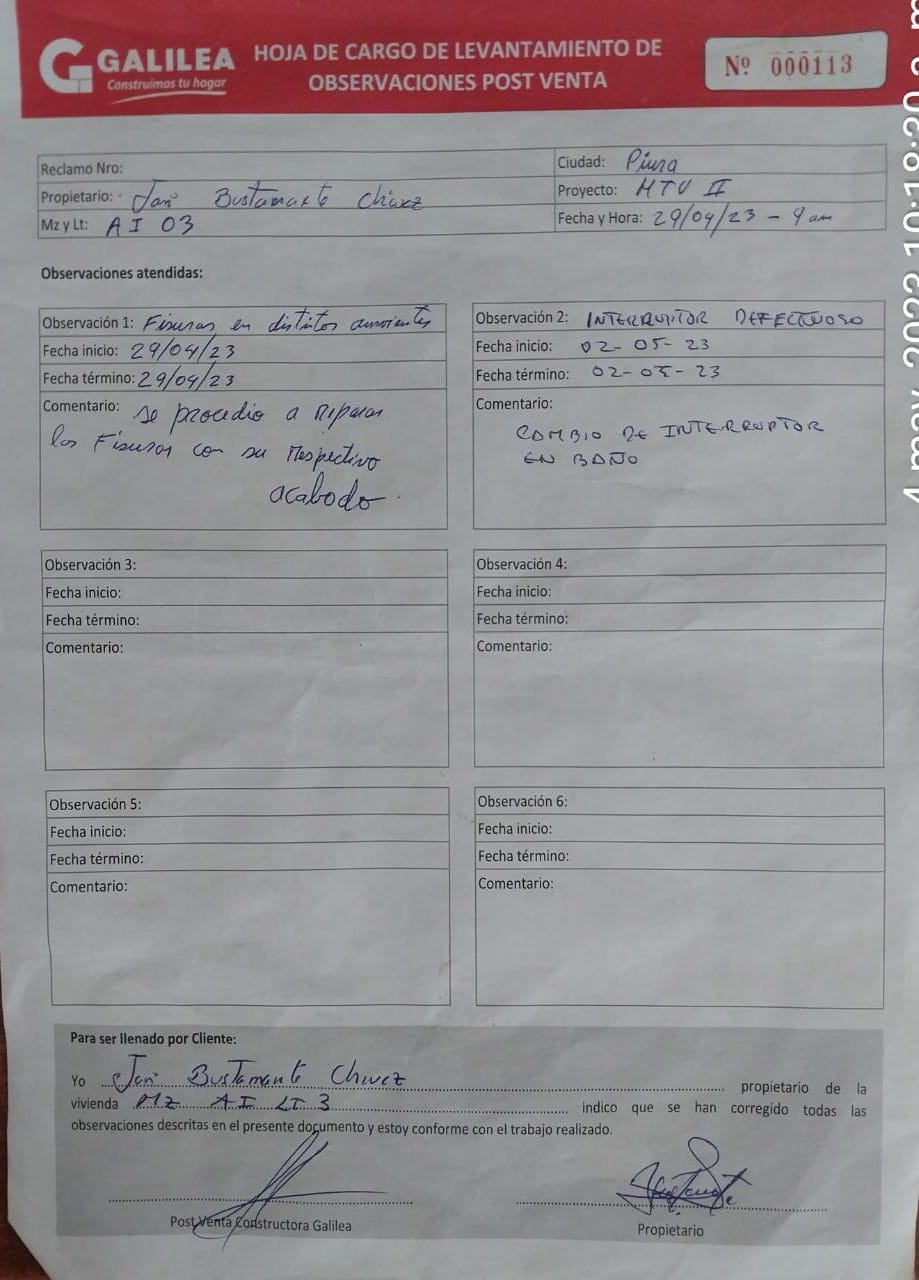 GALILEA
Construimos tu hogar
HOJA DE CARGO DE LEVANTAMIENTO DE
OBSERVACIONES POST VENTA
Nº 000113
Reclamo Nro:
Ciudad: Piura
Propietario: Jan Bustamante Chavez
Proyecto: MTV II
Mz y Lt: AI 03
Fecha y Hora: 29/04/23 - 9 am
Observaciones atendidas:
Observación 1: Fisuras en distintos ambientes
Fecha inicio: 29/04/23
Fecha término: 29/04/23
Comentario: se procedio a reparar
las Fisuras con su respectivo
acabado.
Observación 2: INTERRUPTOR DEFECTUOSO
Fecha inicio: 02-05-23
Fecha término: 02-05-23
Comentario:
CAMBIO DE INTERRUPTOR
EN BAÑO
Observación 3:
Fecha inicio:
Fecha término:
Comentario:
Observación 4:
Fecha inicio:
Fecha término:
Comentario:
Observación 5:
Fecha inicio:
Fecha término:
Comentario:
Observación 6:
Fecha inicio:
Fecha término:
Comentario:
Para ser llenado por Cliente:
Yo Jan Bustamante Chavez propietario de la
vivienda Mz AI LT 3 indico que se han corregido todas las
observaciones descritas en el presente documento y estoy conforme con el trabajo realizado.
Post Venta Constructora Galilea
Propietario
4 may. 2023 10:18:20